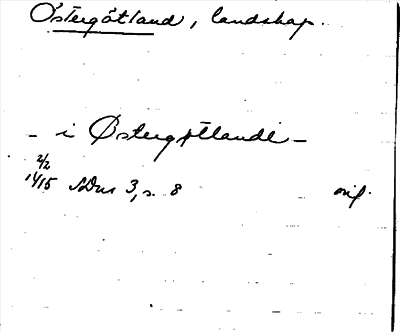 Östergötland, landskap.
- i Østergøtlandi -
2/2
1415 SDns 3, s. 8 orig.